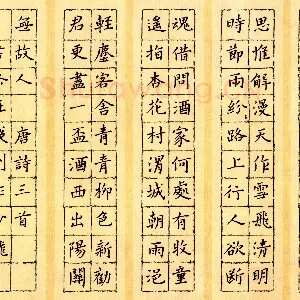 思惟解漫天作雪飛清明
時節雨紛路上行人欲斷
魂借問酒家何處有牧童
遥指杏花村渭城朝雨浥
輕塵客舍青青柳色新勸
君更盡一盃酒西出陽關
無故人 唐詩三首